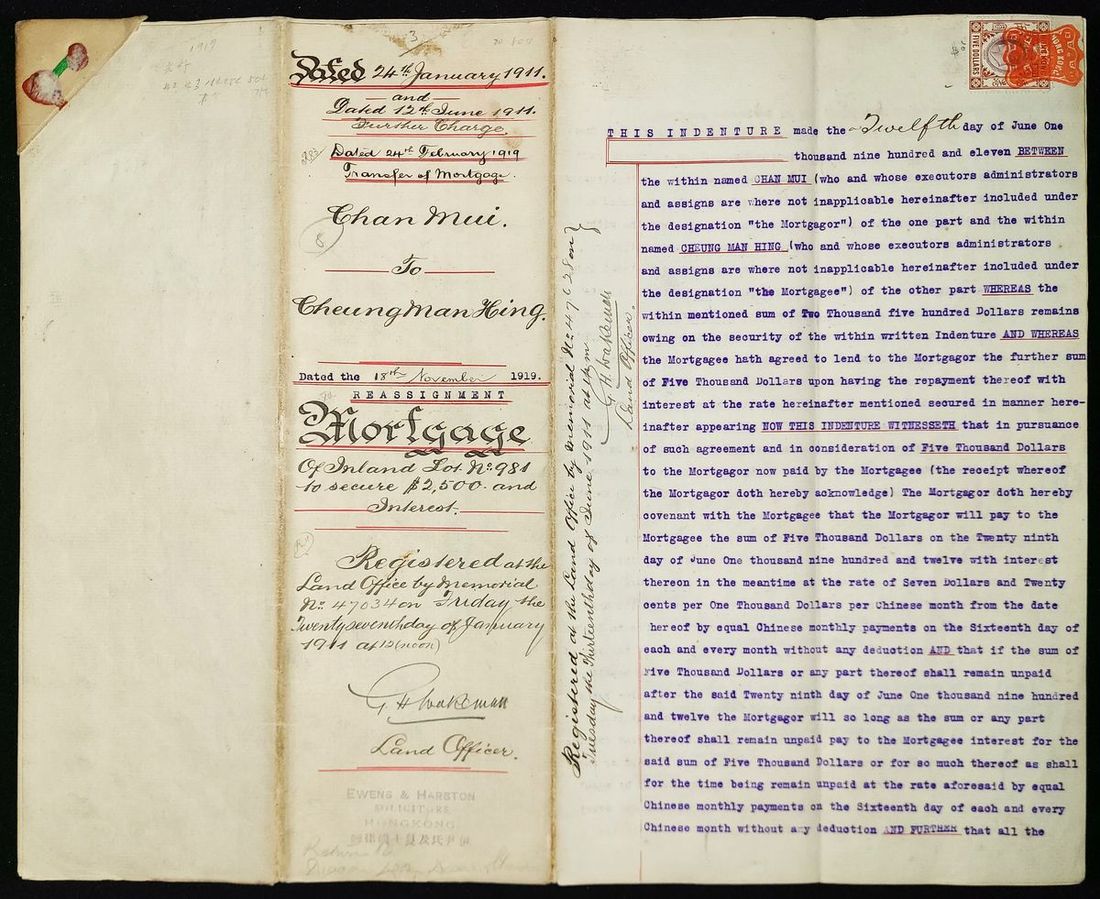 1919
3
Dated 24th January 1911.
and
Dated 12th June 1911.
Further Charge
Dated 24th February 1919
Transfer of Mortgage.
Chan Mui.
8
To
Cheung Man Hing.
Dated the 18th November 1919.
REASSIGNMENT
Mortgage
Of Inland Lot No. 981
to secure $2,500. and
Interest.
Registered at the
Land Office by Memorial
No. 47034 on Friday the
Twenty seventh day of January
1911 at 12 (noon)
G H Wakeman
Land Officer.
EWENS & HARSTON
SOLICITORS
HONGKONG
Registered at the Land Office by Memorial No. 47628 on
Tuesday the Thirteenth day of June 1911 at
G. H. Wakeman
Land Officer.
FIVE DOLLARS
HONG KONG
THIS INDENTURE made the Twelfth day of June One
thousand nine hundred and eleven BETWEEN
the within named CHAN MUI (who and whose executors administrators
and assigns are where not inapplicable hereinafter included under
the designation "the Mortgagor") of the one part and the within
named CHEUNG MAN HING (who and whose executors administrators
and assigns are where not inapplicable hereinafter included under
the designation "the Mortgagee") of the other part WHEREAS the
within mentioned sum of Two Thousand five hundred Dollars remains
owing on the security of the within written Indenture AND WHEREAS
the Mortgagee hath agreed to lend to the Mortgagor the further sum
of Five Thousand Dollars upon having the repayment thereof with
interest at the rate hereinafter mentioned secured in manner here-
inafter appearing NOW THIS INDENTURE WITNESSETH that in pursuance
of such agreement and in consideration of Five Thousand Dollars
to the Mortgagor now paid by the Mortgagee (the receipt whereof
the Mortgagor doth hereby acknowledge) The Mortgagor doth hereby
covenant with the Mortgagee that the Mortgagor will pay to the
Mortgagee the sum of Five Thousand Dollars on the Twenty ninth
day of June One thousand nine hundred and twelve with interest
thereon in the meantime at the rate of Seven Dollars and Twenty
cents per One Thousand Dollars per Chinese month from the date
hereof by equal Chinese monthly payments on the Sixteenth day of
each and every month without any deduction AND that if the sum of
Five Thousand Dollars or any part thereof shall remain unpaid
after the said Twenty ninth day of June One thousand nine hundred
and twelve the Mortgagor will so long as the sum or any part
thereof shall remain unpaid pay to the Mortgagee interest for the
said sum of Five Thousand Dollars or for so much thereof as shall
for the time being remain unpaid at the rate aforesaid by equal
Chinese monthly payments on the Sixteenth day of each and every
Chinese month without any deduction AND FURTHER that all the